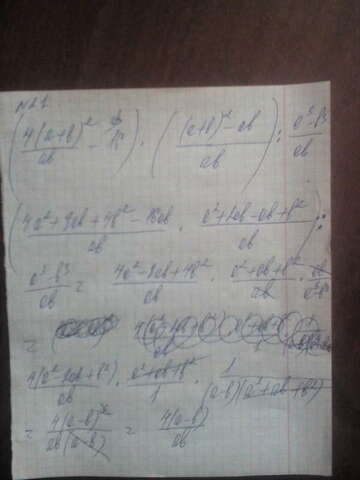 №21
(4(a+b)²/ab - 16) · ((a+b)² - ab/ab) : a³-b³/ab
(4a²+8ab+4b²-16ab/ab · a²+2ab-ab+b²/ab) :
a³-b³/ab = 4a²-8ab+4b²/ab · a²+ab+b²/ab · ab/a³-b³
=
4(a²-2ab+b²)/ab · a²+ab+b²/1 · 1/(a-b)(a²+ab+b²)
= 4(a-b)²/ab(a-b) = 4(a-b)/ab